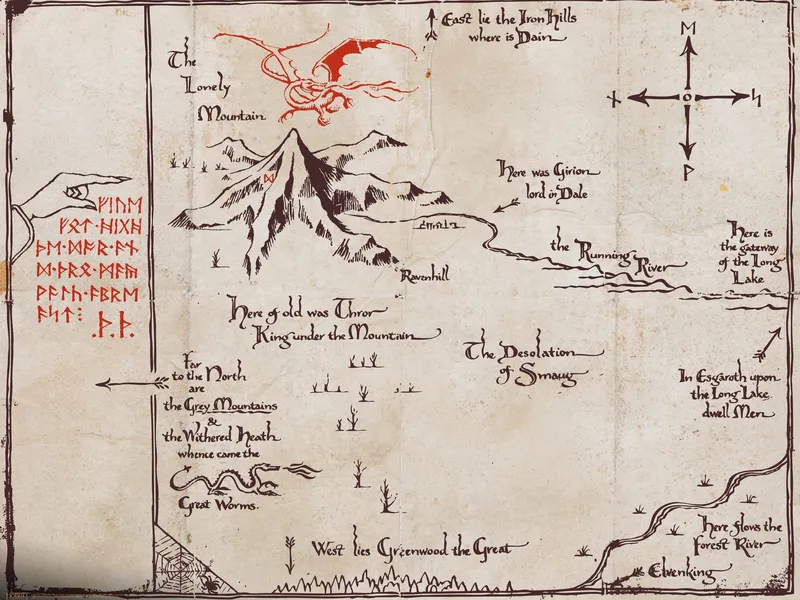 East lie the Iron Hills
where is Dain
The
Lonely
Mountain
ᛖ
ᚾ
ᛋ
ᚹ
ᚠᛁᚢᛖ
ᚠᛟᛏ᛫ᚻᛁᚷᚻ
ᚦᛖ᛫ᛞᚩᚱ᛫ᚫᚾ
ᛞ᛫ᚦᚱᛟ᛫ᛗᚫᚣ
ᚹᚫᛚᚳ᛫ᚫᛒᚱᛖ
ᚫᛋᛏ⁝
᛫ᚦ᛫ᚦ᛫
ᛞ
Here was Girion
lord in Dale
the Running
River
Here is
the gateway
of the Long
Lake
Ravenhill
Here of old was Thror
King under the Mountain
The Desolation
of Smaug
Far
to the North
are
the Grey Mountains
&
the Withered Heath
whence came the
Great Worms.
In Esgaroth upon
the Long Lake
dwell Men
Here flows the
Forest River
Elvenking
West lies Greenwood the Great